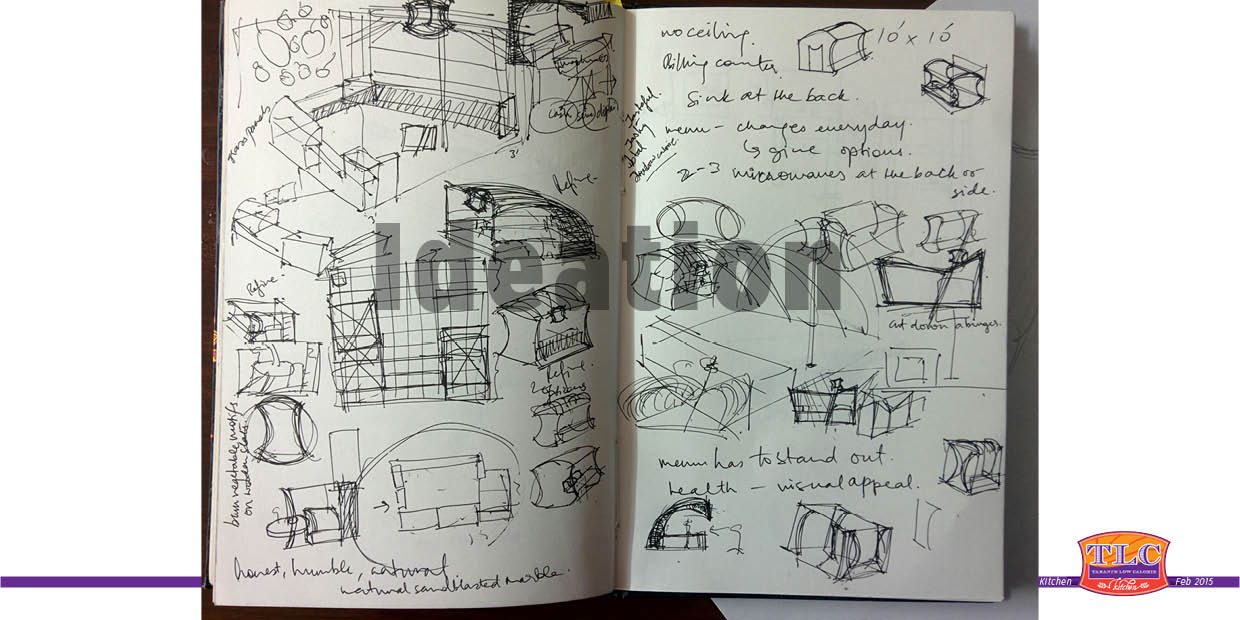 machines
grass panels
3'
3'
Refine.
Ideation
Refine.
Refine.
2 options
burn vegetable motifs
on wooden slats.
honest, humble, natural
natural sandblasted marble.
no ceiling.
10' x 10'
Billing counter.
Sink at the back.
menu - changes everyday.
give options.
2-3 microwaves at the back or
side.
Tasteful.
Tasty
menu has to stand out.
health - visual appeal.
Kitchen
TLC
TARANTH LOW CALORIE
kitchen
Feb 2015